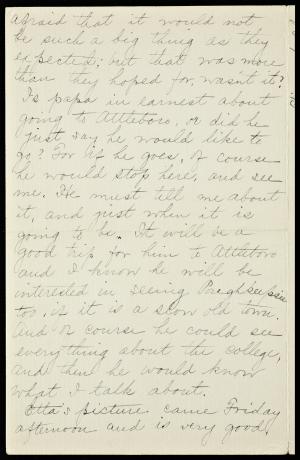 afraid that it would not
be such a big thing as they
expected; but that was more
than they hoped for, wasn't it?
Is papa in earnest about
going to Attleboro, or did he
just say he would like to
go? For if he goes, of course
he would stop here, and see
me. He must tell me about
it, and just when it is
going to be. It will be a
good trip for him to Attleboro
and I know he will be
interested in seeing
too, if it is a slow old town.
And of course he could see
everything about the college,
and then he would know
what I talk about.
Etta's picture came Friday
afternoon and is very good.